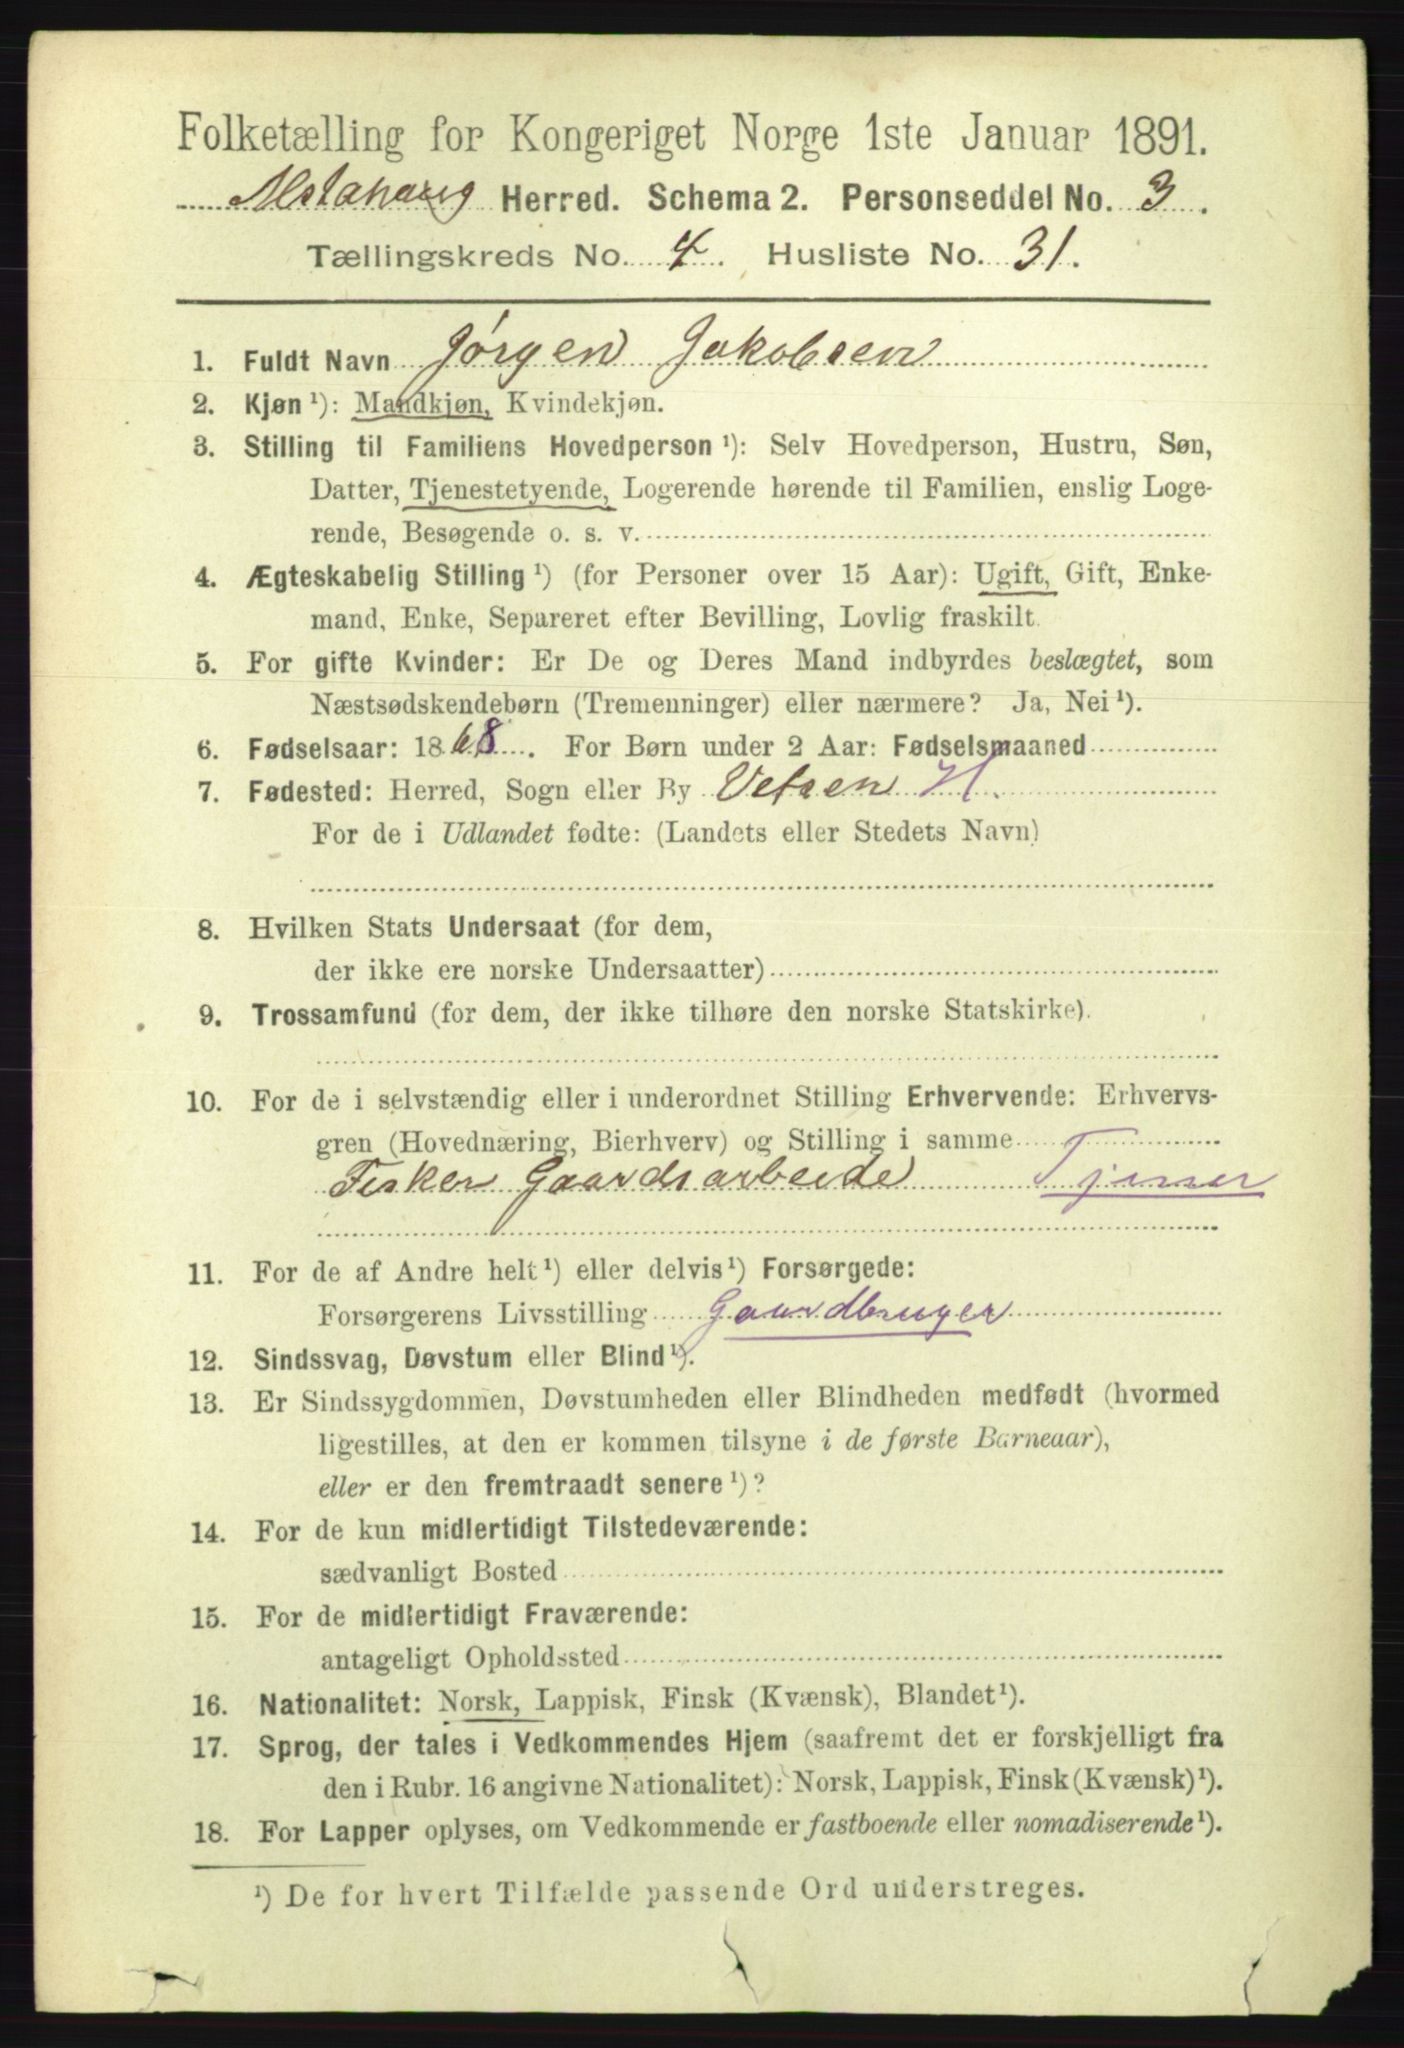 Folketælling for Kongeriget Norge 1ste Januar 1891.
Alstahaug Herred. Schema 2. Personseddel No. 3.
Tællingskreds No. 4. Husliste No. 31.
1. Fuldt Navn Jørgen Jakobsen
2. Kjøn ¹): Mandkjøn, Kvindekjøn.
3. Stilling til Familiens Hovedperson ¹): Selv Hovedperson, Hustru, Søn,
Datter, Tjenestetyende, Logerende hørende til Familien, enslig Loge-
rende, Besøgende o. s. v.
4. Ægteskabelig Stilling ¹) (for Personer over 15 Aar): Ugift, Gift, Enke-
mand, Enke, Separeret efter Bevilling, Lovlig fraskilt.
5. For gifte Kvinder: Er De og Deres Mand indbyrdes beslægtet, som
Næstsødskendebørn (Tremenninger) eller nærmere? Ja, Nei ¹).
6. Fødselsaar: 1868. For Børn under 2 Aar: Fødselsmaaned
7. Fødested: Herred, Sogn eller By Vefsen H.
For de i Udlandet fødte: (Landets eller Stedets Navn)
8. Hvilken Stats Undersaat (for dem,
der ikke ere norske Undersaatter)
9. Trossamfund (for dem, der ikke tilhøre den norske Statskirke).
10. For de i selvstændig eller i underordnet Stilling Erhvervende: Erhvervs-
gren (Hovednæring, Bierhverv) og Stilling i samme
Fisker Gaardsarbeide Tjener
11. For de af Andre helt ¹) eller delvis ¹) Forsørgede:
Forsørgerens Livsstilling Gaardbruger
12. Sindssvag, Døvstum eller Blind ¹).
13. Er Sindssygdommen, Døvstumheden eller Blindheden medfødt (hvormed
ligestilles, at den er kommen tilsyne i de første Barneaar),
eller er den fremtraadt senere ¹)?
14. For de kun midlertidigt Tilstedeværende:
sædvanligt Bosted
15. For de midlertidigt Fraværende:
antageligt Opholdssted
16. Nationalitet: Norsk, Lappisk, Finsk (Kvænsk), Blandet ¹).
17. Sprog, der tales i Vedkommendes Hjem (saafremt det er forskjelligt fra
den i Rubr. 16 angivne Nationalitet): Norsk, Lappisk, Finsk (Kvænsk) ¹).
18. For Lapper oplyses, om Vedkommende er fastboende eller nomadiserende ¹).
¹) De for hvert Tilfælde passende Ord understreges.